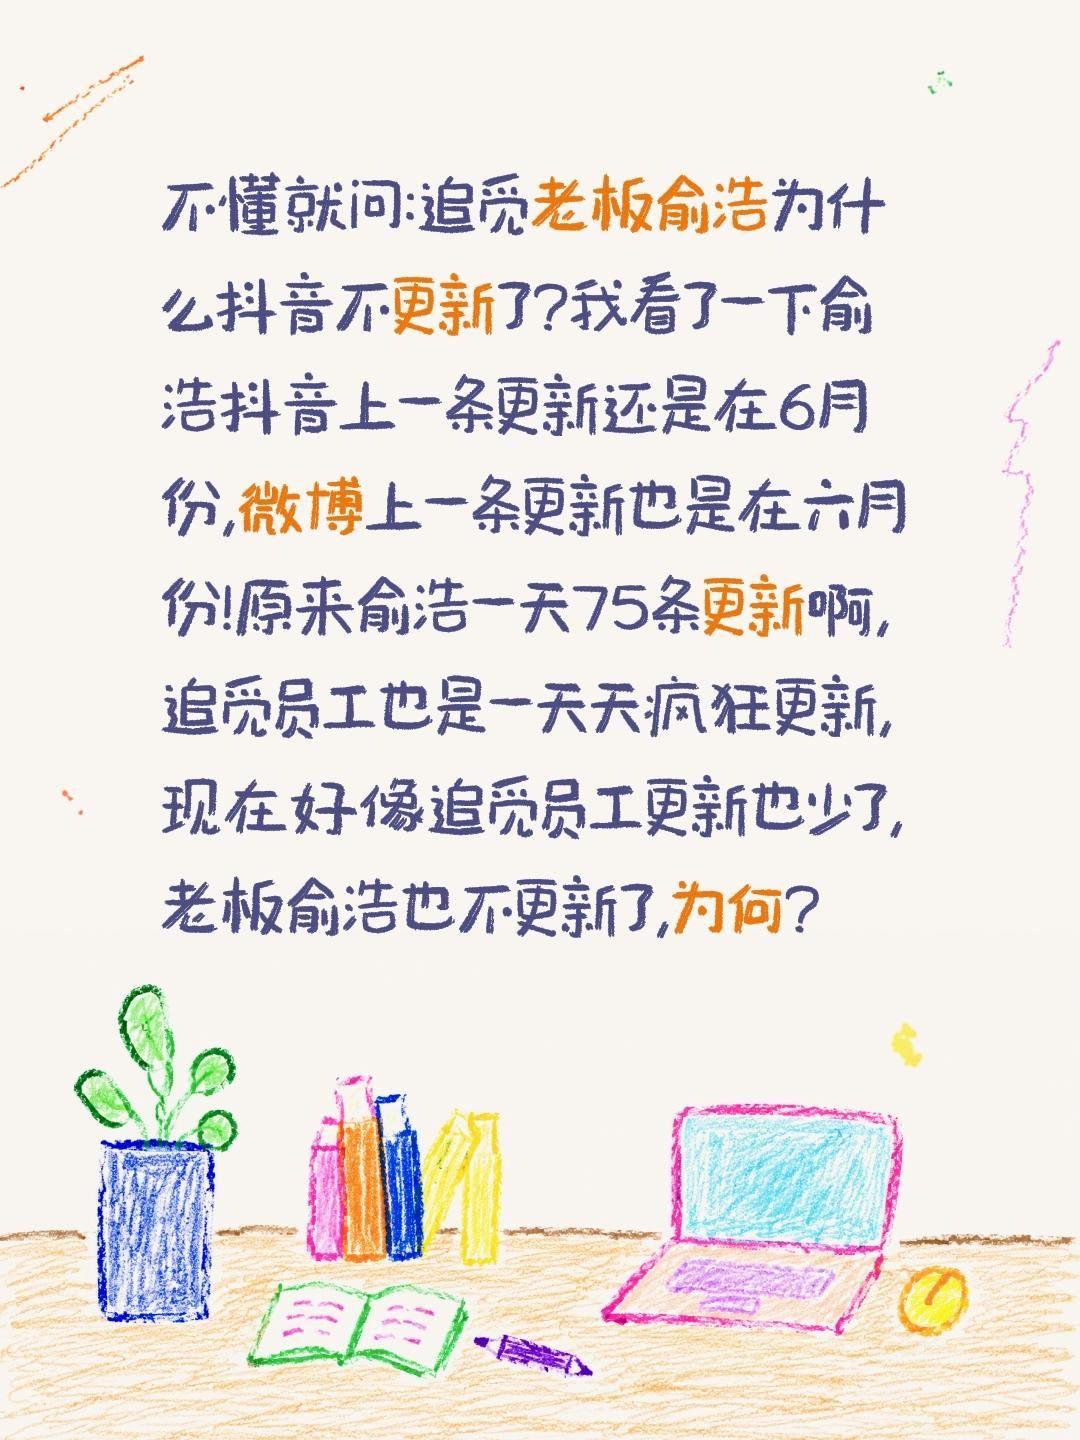 不懂就问:追觅老板俞浩为什
么抖音不更新了?我看了一下俞
浩抖音上一条更新还是在6月
份,微博上一条更新也是在六月
份!原来俞浩一天75条更新啊,
追觅员工也是一天天疯狂更新,
现在好像追觅员工更新也少了,
老板俞浩也不更新了,为何?